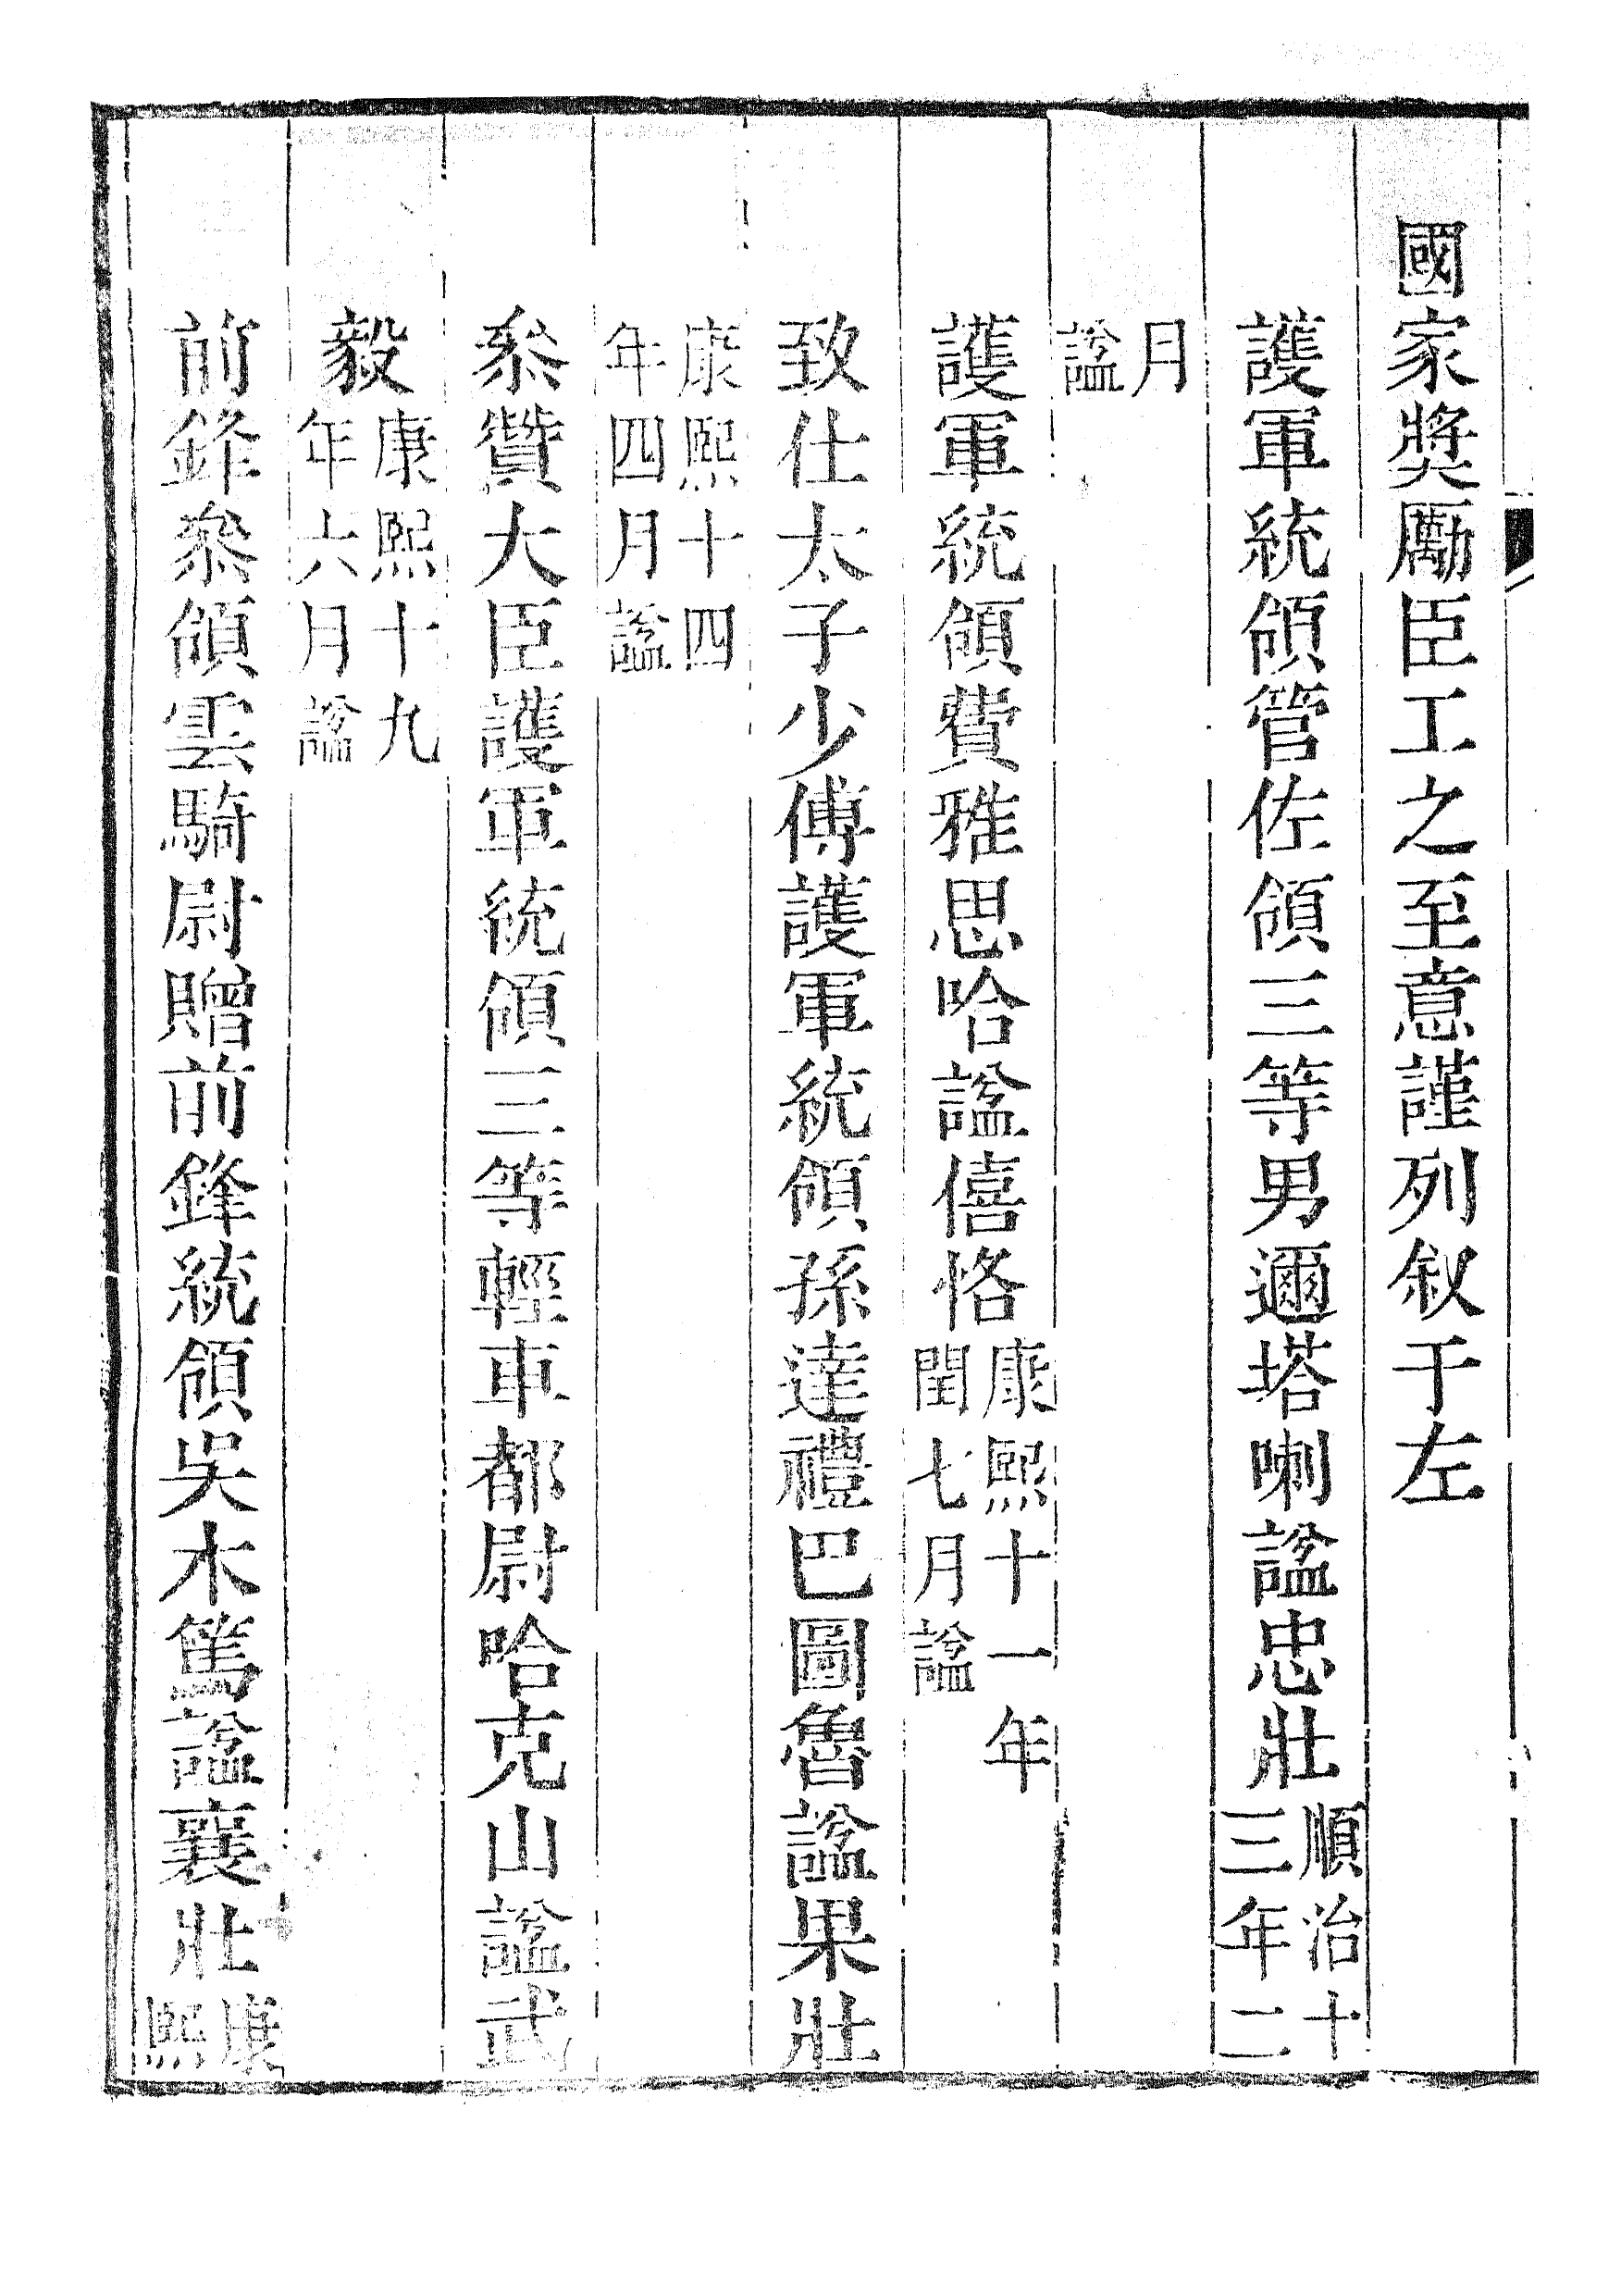 國家獎厲臣工之至意謹列叙于左
護軍統領管佐領三等男邇塔喇諡忠壯順治十三年二
月諡
護軍統領費雅思哈諡僖恪康熙十一年閏七月諡
致仕太子少傅護軍統領孫達禮巴圖魯諡果壯
康熙十四年四月諡
叅贊大臣護軍統領三等輕車都尉哈克山諡武
毅康熙十九年六月諡
前鋒叅領雲騎尉贈前鋒統領吳木篤諡襄壯康熙